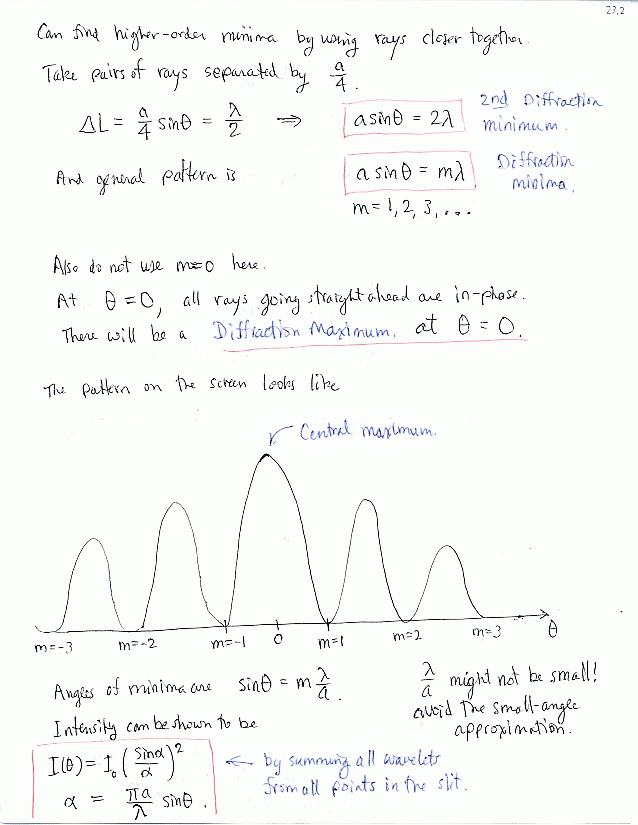 27.2
Can find higher-order minima by using rays closer together.
Take pairs of rays separated by a/4.
ΔL = a/4 sinθ = λ/2 ⇒ a sinθ = 2λ
2nd Diffraction
minimum.
And general pattern is a sinθ = mλ
Diffraction
minima.
m = 1, 2, 3, ...
Also do not use m=0 here.
At θ = 0, all rays going straight ahead are in-phase.
There will be a Diffraction Maximum. at θ = 0.
The pattern on the screen looks like
Central maximum.
m=-3 m=-2 m=-1 0 m=1 m=2 m=3 θ
Angles of minima are sinθ = m λ/a.
λ/a might not be small!
avoid the small-angle
approximation.
Intensity can be shown to be
I(θ) = I₀ (sinα/α)²
α = πa/λ sinθ.
← by summing all wavelets
from all points in the slit.